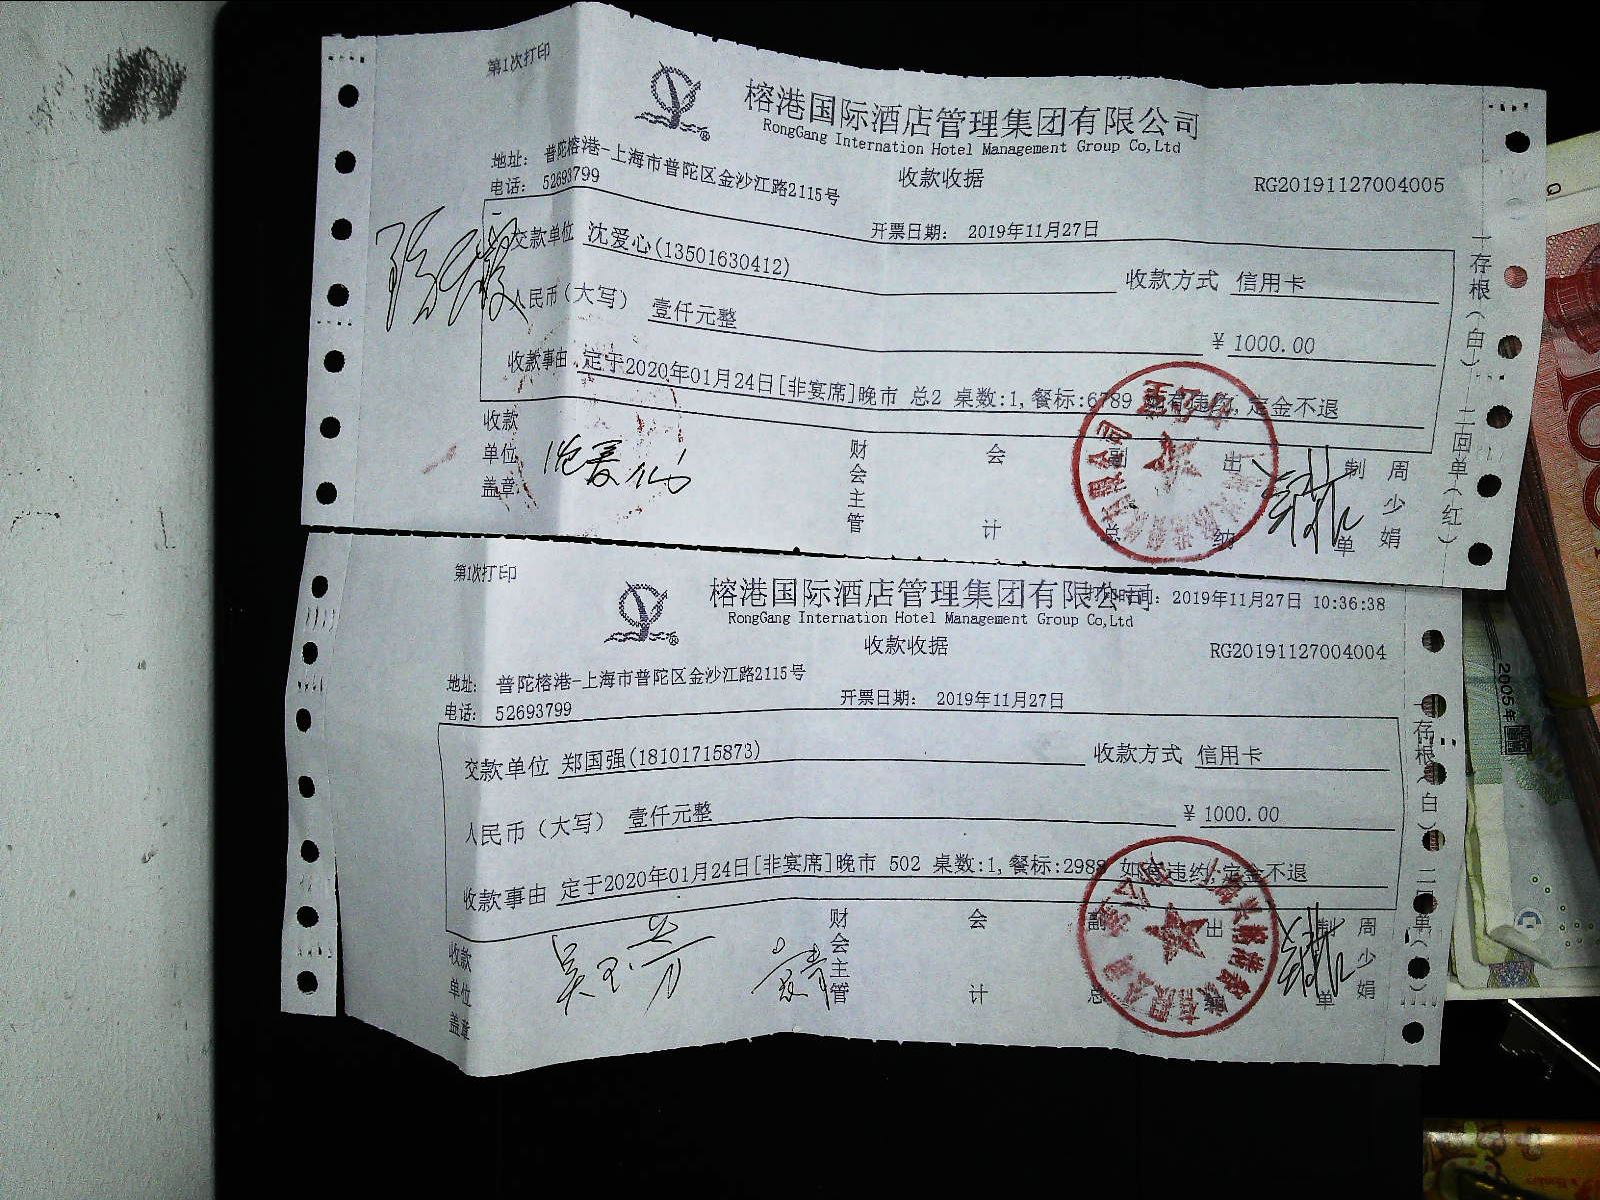 第1次打印
榕港国际酒店管理集团有限公司
RongGang Internation Hotel Management Group Co,Ltd
地址: 普陀榕港-上海市普陀区金沙江路2115号
收款收据
RG20191127004005
电话: 52693799
开票日期: 2019年11月27日
交款单位 沈爱心(13501630412)
收款方式 信用卡
人民币(大写) 壹仟元整
¥ 1000.00
收款事由 定于2020年01月24日[非宴席]晚市 总2 桌数:1,餐标:6789 如有违约,定金不退
收款单位盖章
财会主管
会计
副总
出纳
制单
周少娟
一存根(白) 二回单(红)
第1次打印
榕港国际酒店管理集团有限公司
打印时间: 2019年11月27日 10:36:38
RongGang Internation Hotel Management Group Co,Ltd
收款收据
RG20191127004004
地址: 普陀榕港-上海市普陀区金沙江路2115号
电话: 52693799
开票日期: 2019年11月27日
交款单位 郑国强(18101715873)
收款方式 信用卡
人民币(大写) 壹仟元整
¥ 1000.00
收款事由 定于2020年01月24日[非宴席]晚市 502 桌数:1,餐标:2988 如有违约,定金不退
收款单位盖章
吴玉芳
财会主管
会计
副总
出
制单
周少娟
一存根(白) 二回单(
2005年